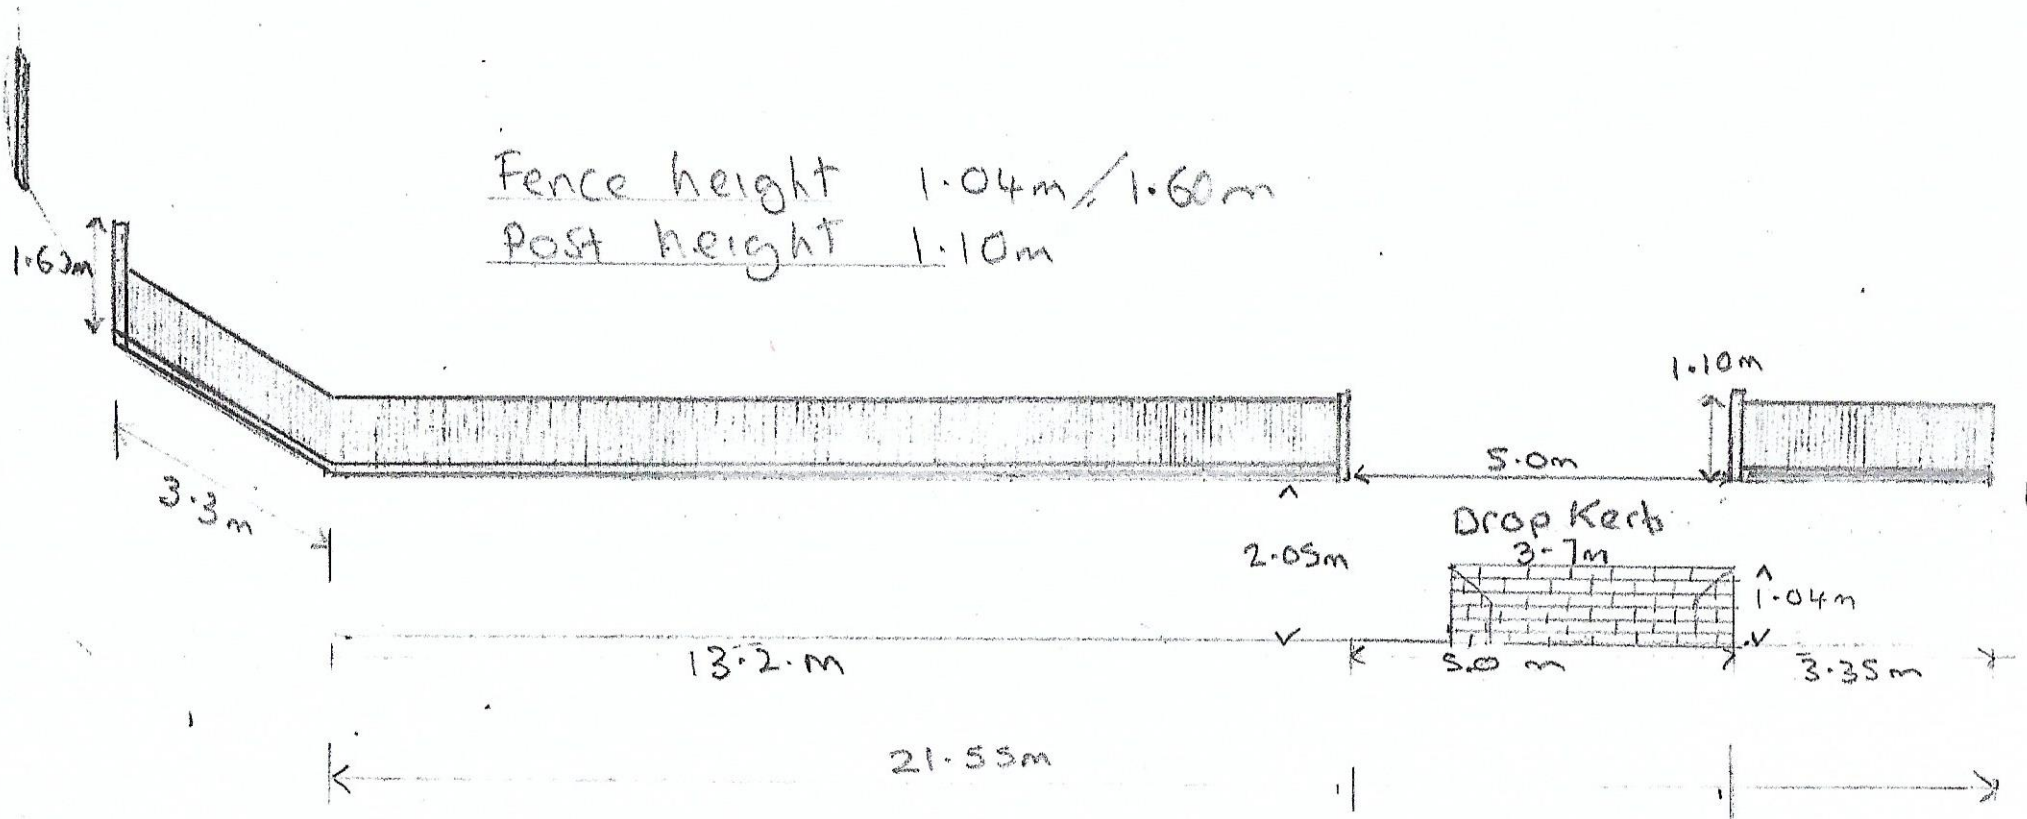 Fence height 1.04m/1.60m
Post height 1.10m
1.10m
5.0m
3.3m
Drop Kerb
3.7m
2.05m
1.04m
13.2.m
5.0 m
3.35m
21.55m